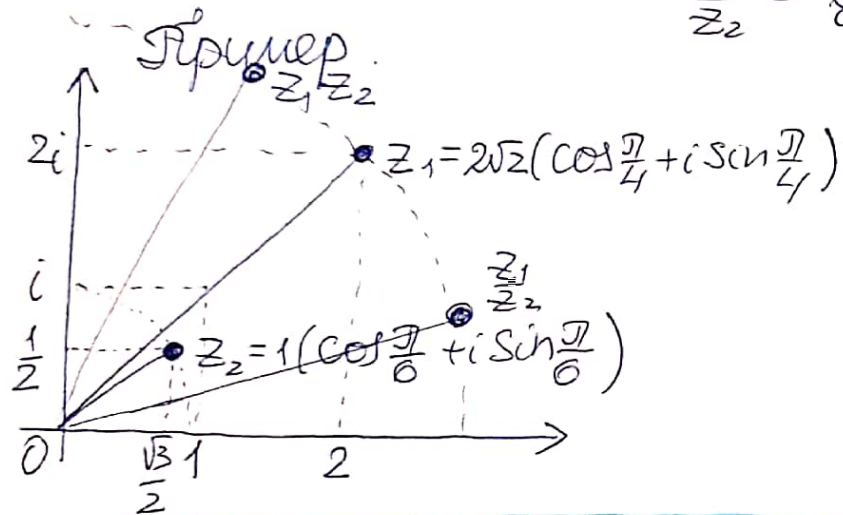 z₂
Пример
z₁z₂
2i
z₁=2√2(cos π/4 + i sin π/4)
i
z₁/z₂
1/2
z₂=1(cos π/6 + i sin π/6)
0
√3/2
1
2